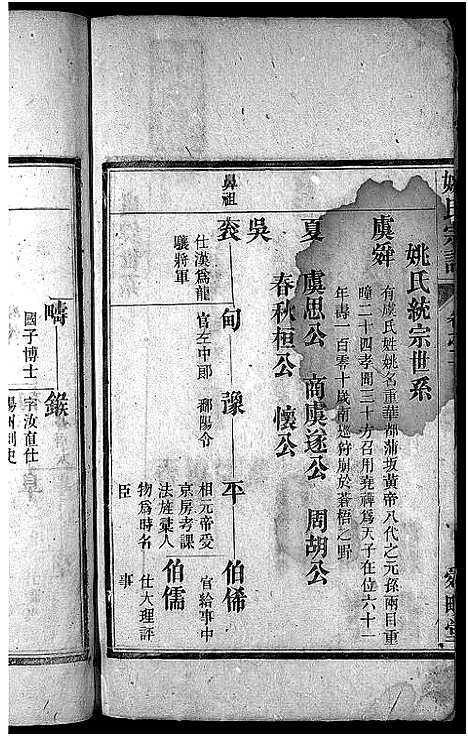 姚氏宗譜
姚氏統宗世系
虞舜
有虞氏姓姚名重華都蒲坂黃帝八代之元孫兩目重
瞳二十四孝聞三十方召用堯禪爲天子在位六十一
年壽一百零十歲南巡狩崩於蒼梧之野
夏 虞思公 商虞遂公 周胡公
春秋桓公 懷公
吳
鼻祖
衮 甸 豫 平 伯俙
仕漢爲龍
驤將軍
官左中郎
鄱陽令
相元帝受
京房考課
法旌稾人
物爲時名
臣
官給事中
伯儒
仕大理評
事
疇 鍭
國子博士
字汝直仕